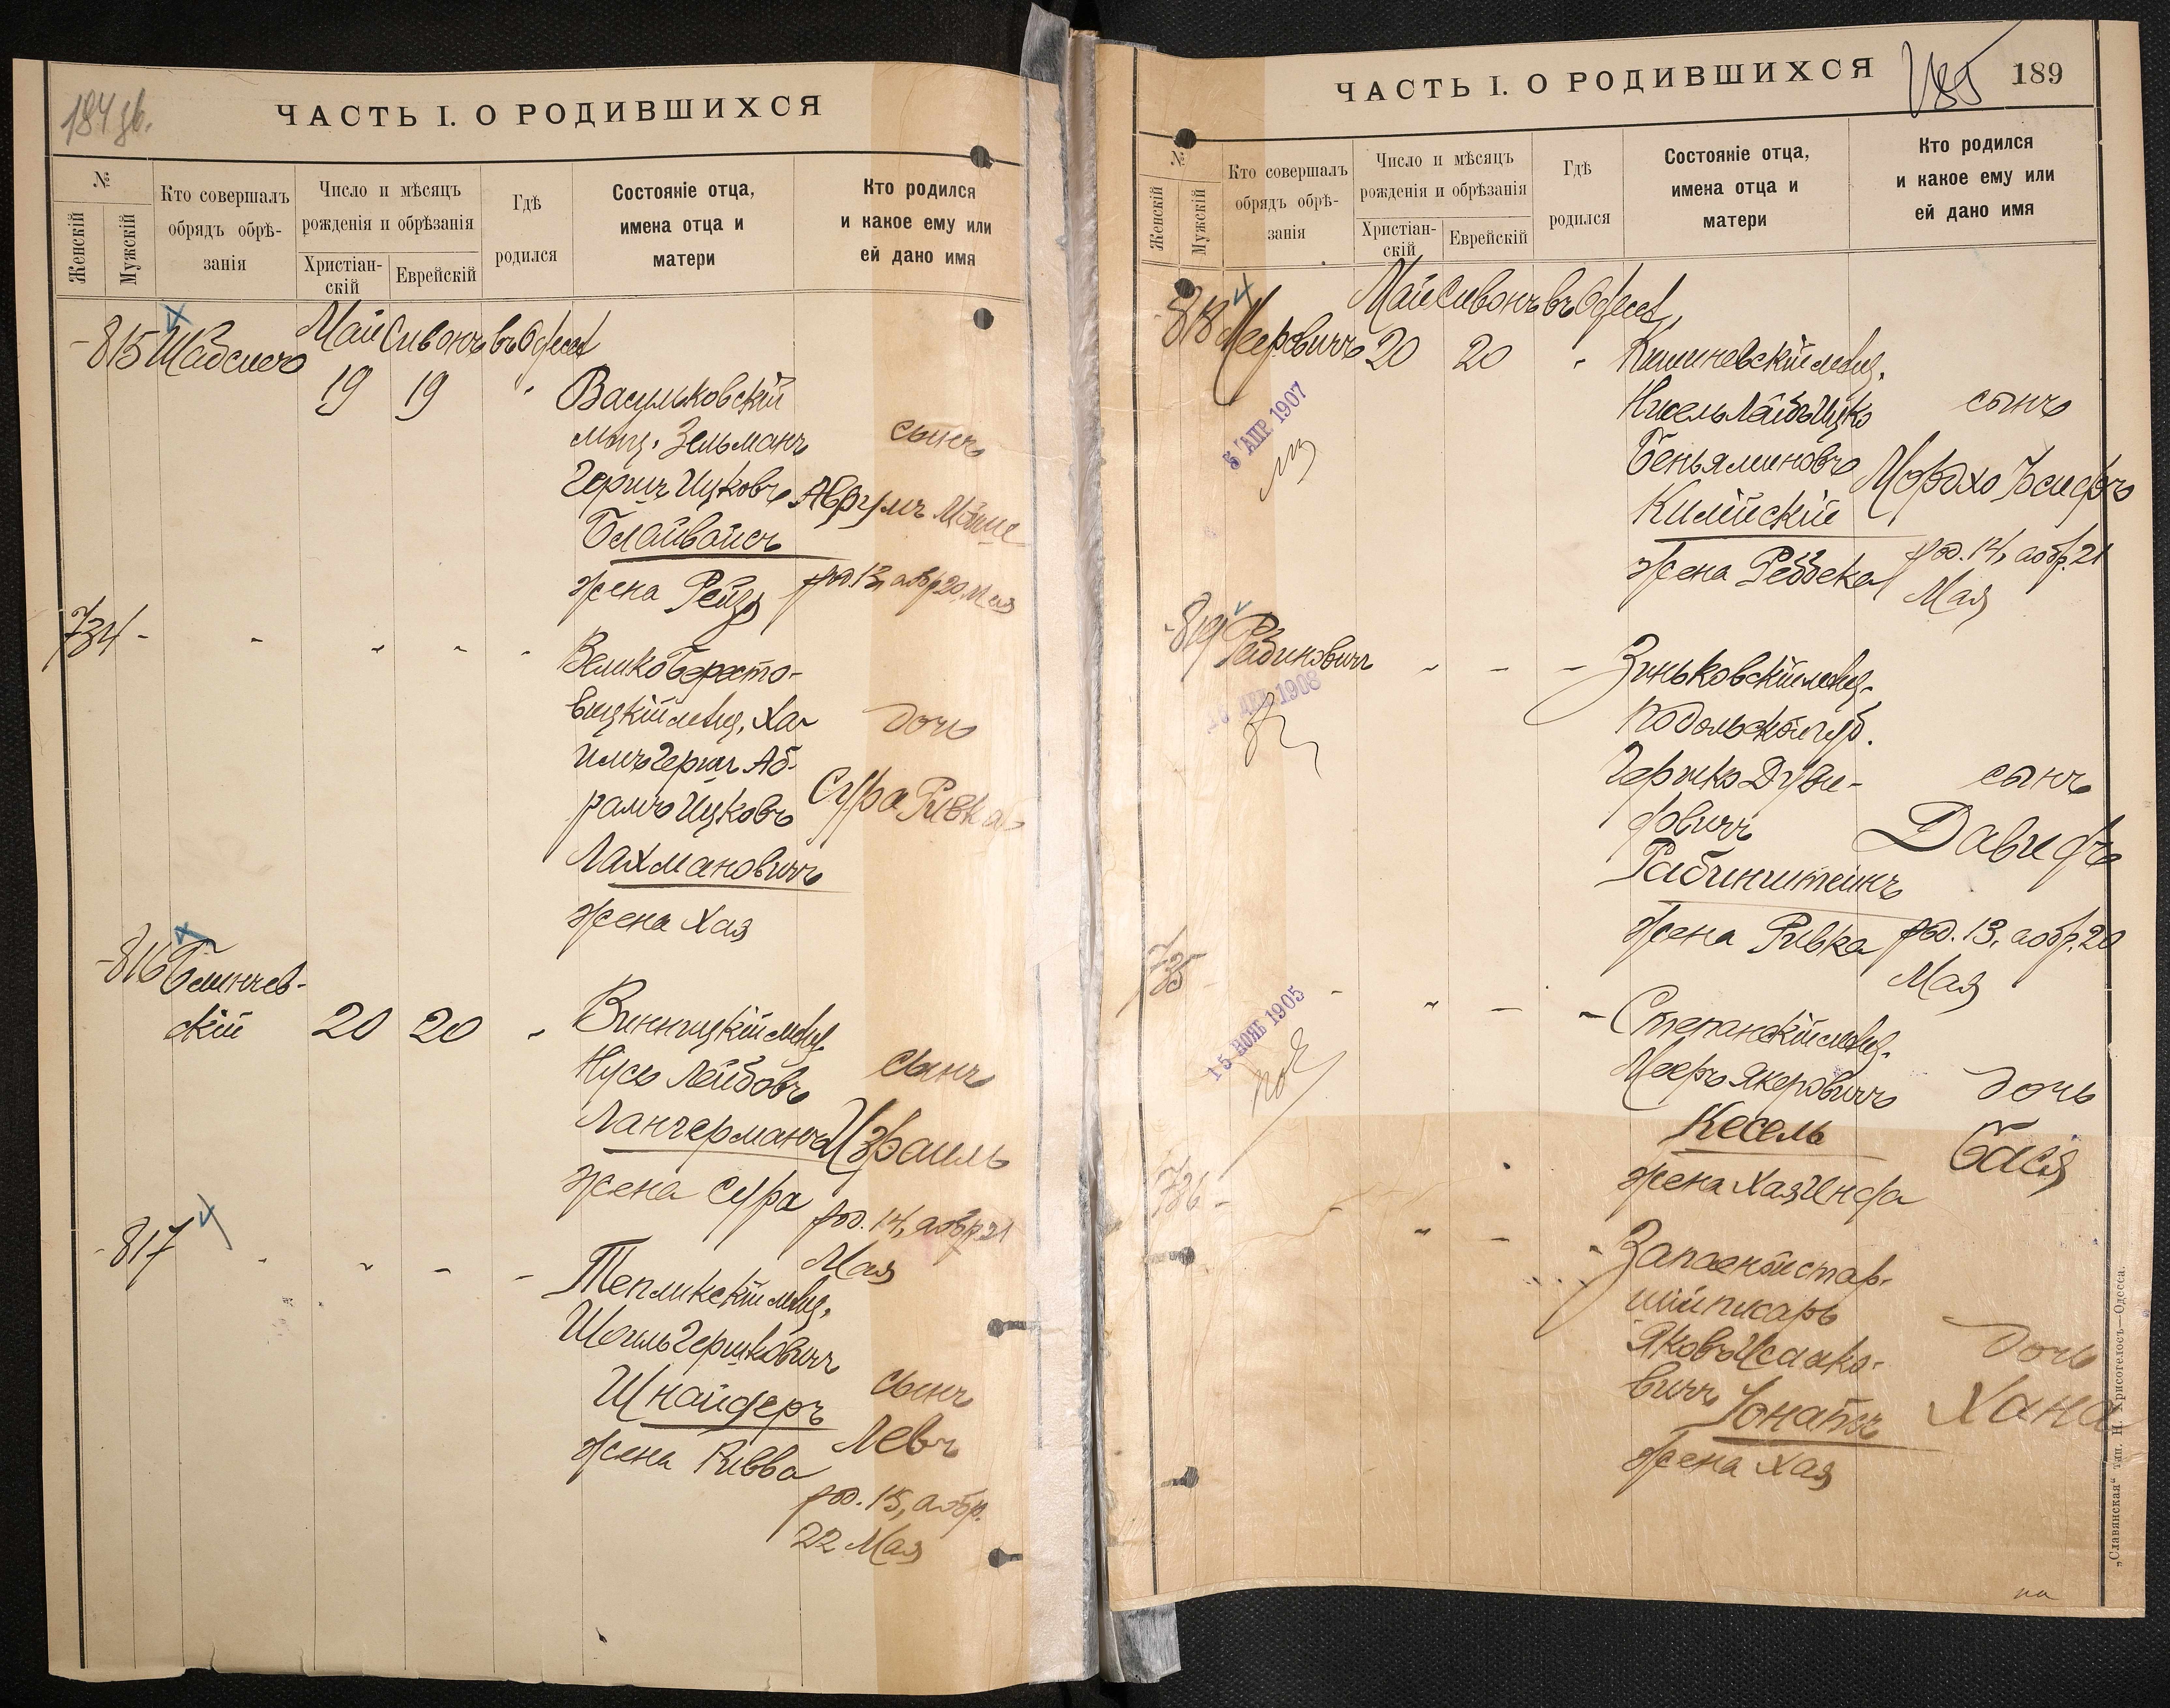 184 об.
ЧАСТЬ I. О РОДИВШИХСЯ
№
Женскій
Мужскій
Кто совершалъ
обрядъ обрѣ-
занія
Число и мѣсяцъ
рожденія и обрѣзанія
Христіан-
скій
Еврейскій
Гдѣ
родился
Состояніе отца,
имена отца и
матери
Кто родился
и какое ему или
ей дано имя
Май Сивонъ въ Одессѣ
815 Шабсисъ
19 19 "
Васильковскій
мѣщ. Зельманъ
Гершъ Ицковъ
Блайвайсъ
жена Рейзя
сынъ
Аврумъ Мойше
род. 13, а обр 20 Мая
734 - - " - "
Великобересто-
вицкій мѣщ. Ха-
имъ Герш Аб-
рамъ Ицковъ
Лахмановичъ
жена Хая
дочь
Сура Ривка
816
скій 20 20 "
Винницкій мѣщ
Нусь Лейбовъ
Лангерманъ
жена Сура
сынъ
Израиль
род. 14, а обр 21
Мая
817 - " - -
Тепликскій мѣщ.
Шоиль Гершковичъ
Шнайдеръ
жена Ривва
сынъ
Левъ
род. 15, а обр.
22 Мая
ЧАСТЬ I. О РОДИВШИХСЯ
185
189
№
Женскій
Мужскій
Кто совершалъ
обрядъ обрѣ-
занія
Число и мѣсяцъ
рожденія и обрѣзанія
Христіан-
скій
Еврейскій
Гдѣ
родился
Состояніе отца,
имена отца и
матери
Кто родился
и какое ему или
ей дано имя
Май Сивонъ въ Одессѣ
818 Мееровичъ 20 20 "
5 АПР. 1907
Кишиневскій мѣщ.
Нисель Лейбъ Ицко
Беньяминовъ
Килійскій
жена Ребека
сынъ
Мордхо Іосифъ
род. 14, а обр. 21
Мая
819 Рабиновичъ - - -
1908
Зиньковскій мѣщ.
Подольской губ.
Гершко Дуви-
довичъ
Рабинштейнъ
жена Ривка
сынъ
Давидъ
род. 13, а обр. 20
Мая
735 - - " - -
15 НОЯБ 1905
Степанскій мѣщ.
Мееръ Якеровичъ
Кесель
жена Хая Инда
дочь
Бася
736 - - " - -
Запасной стар-
шій писарь
Яковъ Исаако-
вичъ
жена Хая
дочь
Хана
„Славянская“ тип. Н. Хрисогелосъ—Одесса.